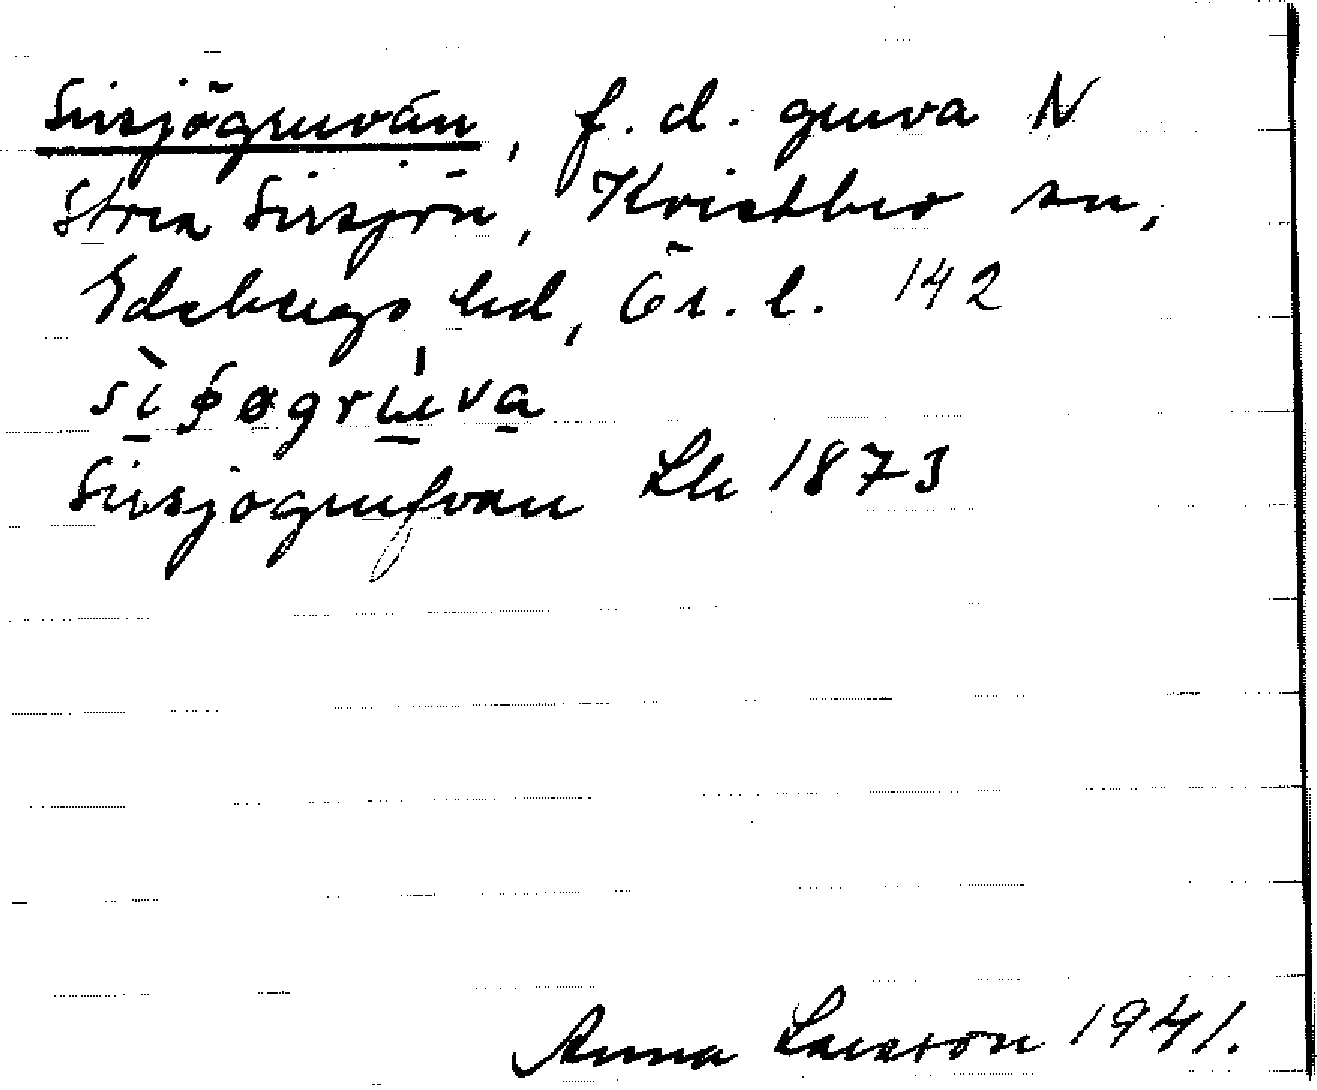 Sirsjögruvan, f. d. gruva N
Stora Sirsjön, Kvistbro sn,
Edsbergs hd, Ör. l. 142
sìʂøgrúva
Sirsjögrufvan 1873
Anna Larsson 1941.